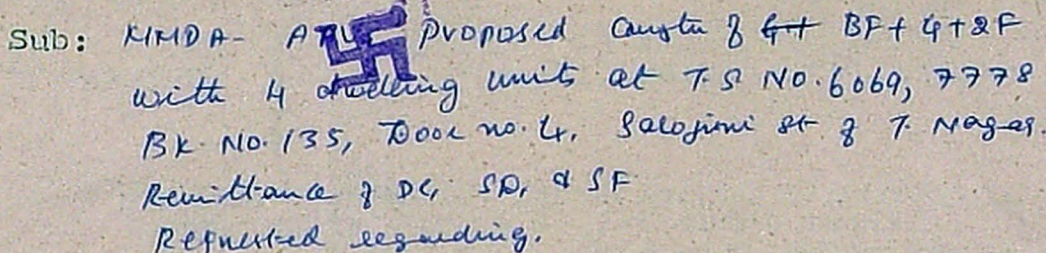 Sub: MMDA- APU Proposed constn of G+ BF+G+2F
with 4 dwelling units at T.S No.6069, 7778
Bk. No. 135, Door no. 4, Sarojini st of T. Nagar.
Remittance of DC, SD, & SF
Requested regarding.